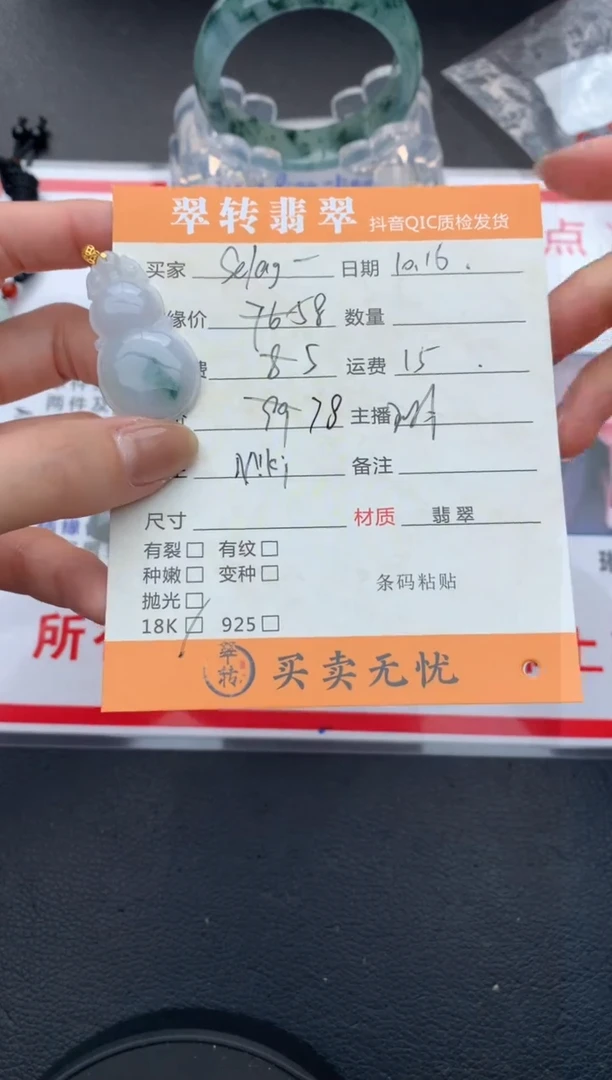 翠转翡翠 抖音QIC质检发货
买家 Selag 一 日期 10.16.
缘价 7658 数量
费 85 运费 15.
主播
Niki 备注
尺寸 材质 翡翠
有裂□ 有纹□
种嫩□ 变种□
条码粘贴
抛光□
18K□ 925□
翠转 买卖无忧
点
所